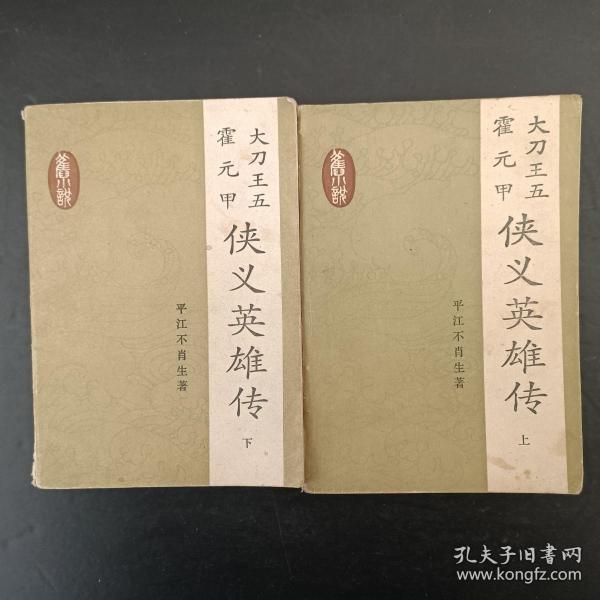 大刀王五
霍元甲
侠义英雄传
下
平江不肖生著
舊小説
大刀王五
霍元甲
侠义英雄传
上
平江不肖生著
舊小説
孔夫子旧书网
www.kongfz.com